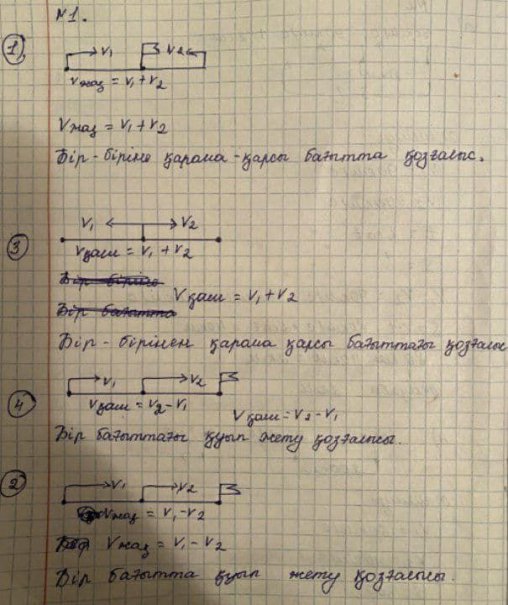 №1.
1) V₁ V₂
Vжақ = V₁ + V₂
Vжақ = V₁ + V₂
Бір - біріне қарама - қарсы бағытта қозғалыс.
3) V₁ V₂
Vқаш = V₁ + V₂
Бір біріне
Vқаш = V₁ + V₂
Бір бағытта
Бір - бірінен қарама қарсы бағыттағы қозғалыс
4) V₁ V₂
Vқаш = V₂ - V₁
Vқаш = V₂ - V₁
Бір бағыттағы қуып жету қозғалысы.
2) V₁ V₂
Vжақ = V₁ - V₂
Vжақ = V₁ - V₂
Бір бағытта қуып жету қозғалысы.